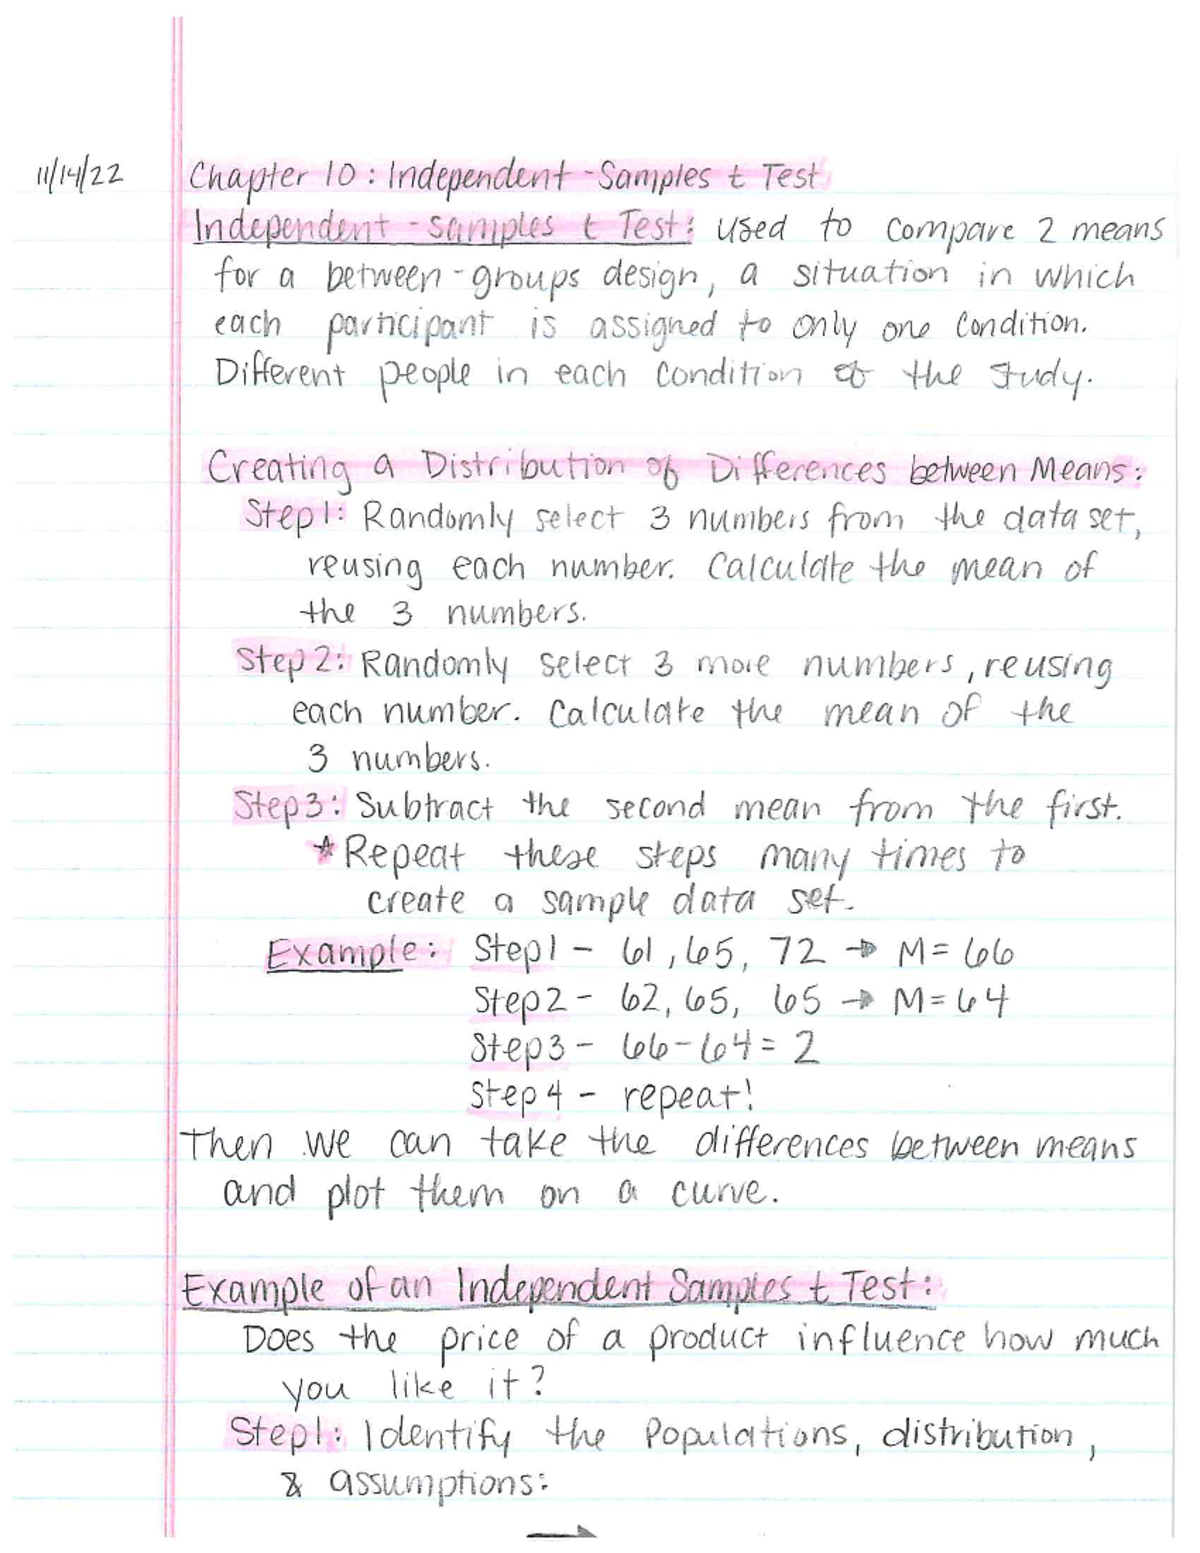 11/14/22 Chapter 10: Independent-Samples t Test
Independent-samples t Test: used to compare 2 means
for a between-groups design, a situation in which
each participant is assigned to only one condition.
Different people in each condition of the study.
Creating a Distribution of Differences between Means:
Step1: Randomly select 3 numbers from the data set,
reusing each number. Calculate the mean of
the 3 numbers.
Step2: Randomly select 3 more numbers, reusing
each number. Calculate the mean of the
3 numbers.
Step3: Subtract the second mean from the first.
* Repeat these steps many times to
create a sample data set.
Example: Step1 - 61, 65, 72 → M = 66
Step2 - 62, 65, 65 → M = 64
Step3 - 66-64 = 2
Step4 - repeat!
Then we can take the differences between means
and plot them on a curve.
Example of an Independent Samples t Test:
Does the price of a product influence how much
you like it?
Step1: Identify the Populations, distribution,
& assumptions:
→